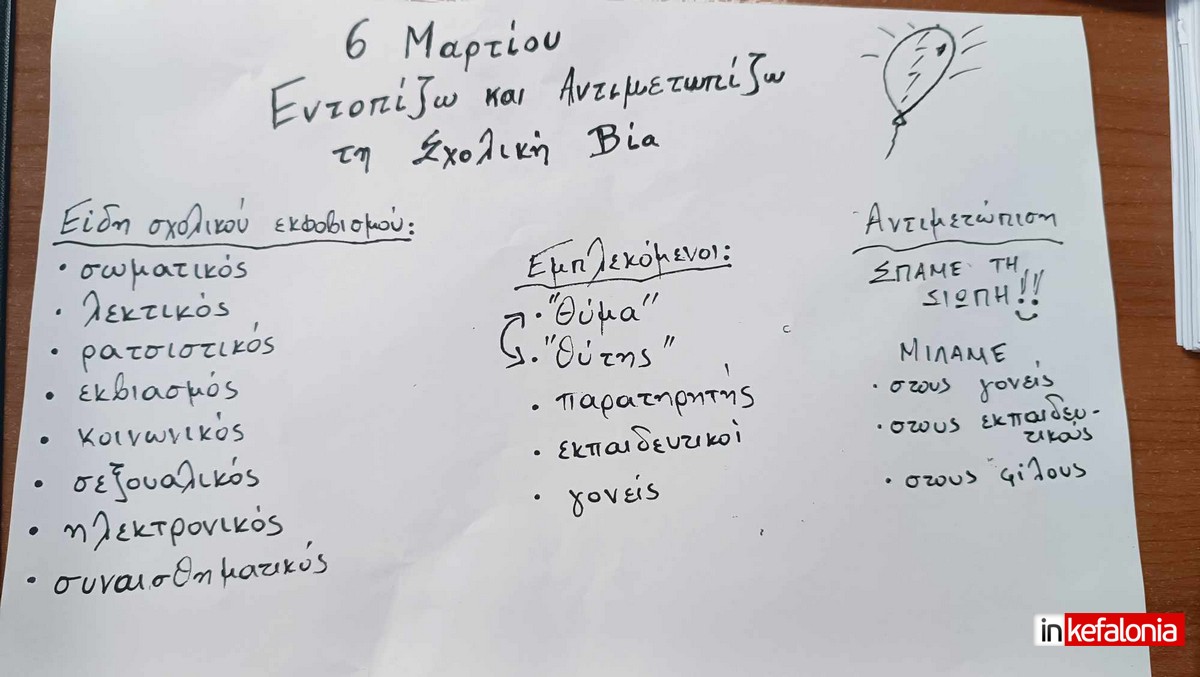 6 Μαρτίου
Εντοπίζω και Αντιμετωπίζω
τη Σχολική Βία
Είδη σχολικού εκφοβισμού:
• σωματικός
• λεκτικός
• ρατσιστικός
• εκβιασμός
• κοινωνικός
• σεξουαλικός
• ηλεκτρονικός
• συναισθηματικός
Εμπλεκόμενοι:
• "Θύμα"
• "Θύτης"
• παρατηρητής
• εκπαιδευτικοί
• γονείς
Αντιμετώπιση
ΣΠΑΜΕ ΤΗ
ΣΙΩΠΗ!!
ΜΙΛΑΜΕ
• στους γονείς
• στους εκπαιδευ-
τικούς
• στους φίλους
inkefalonia